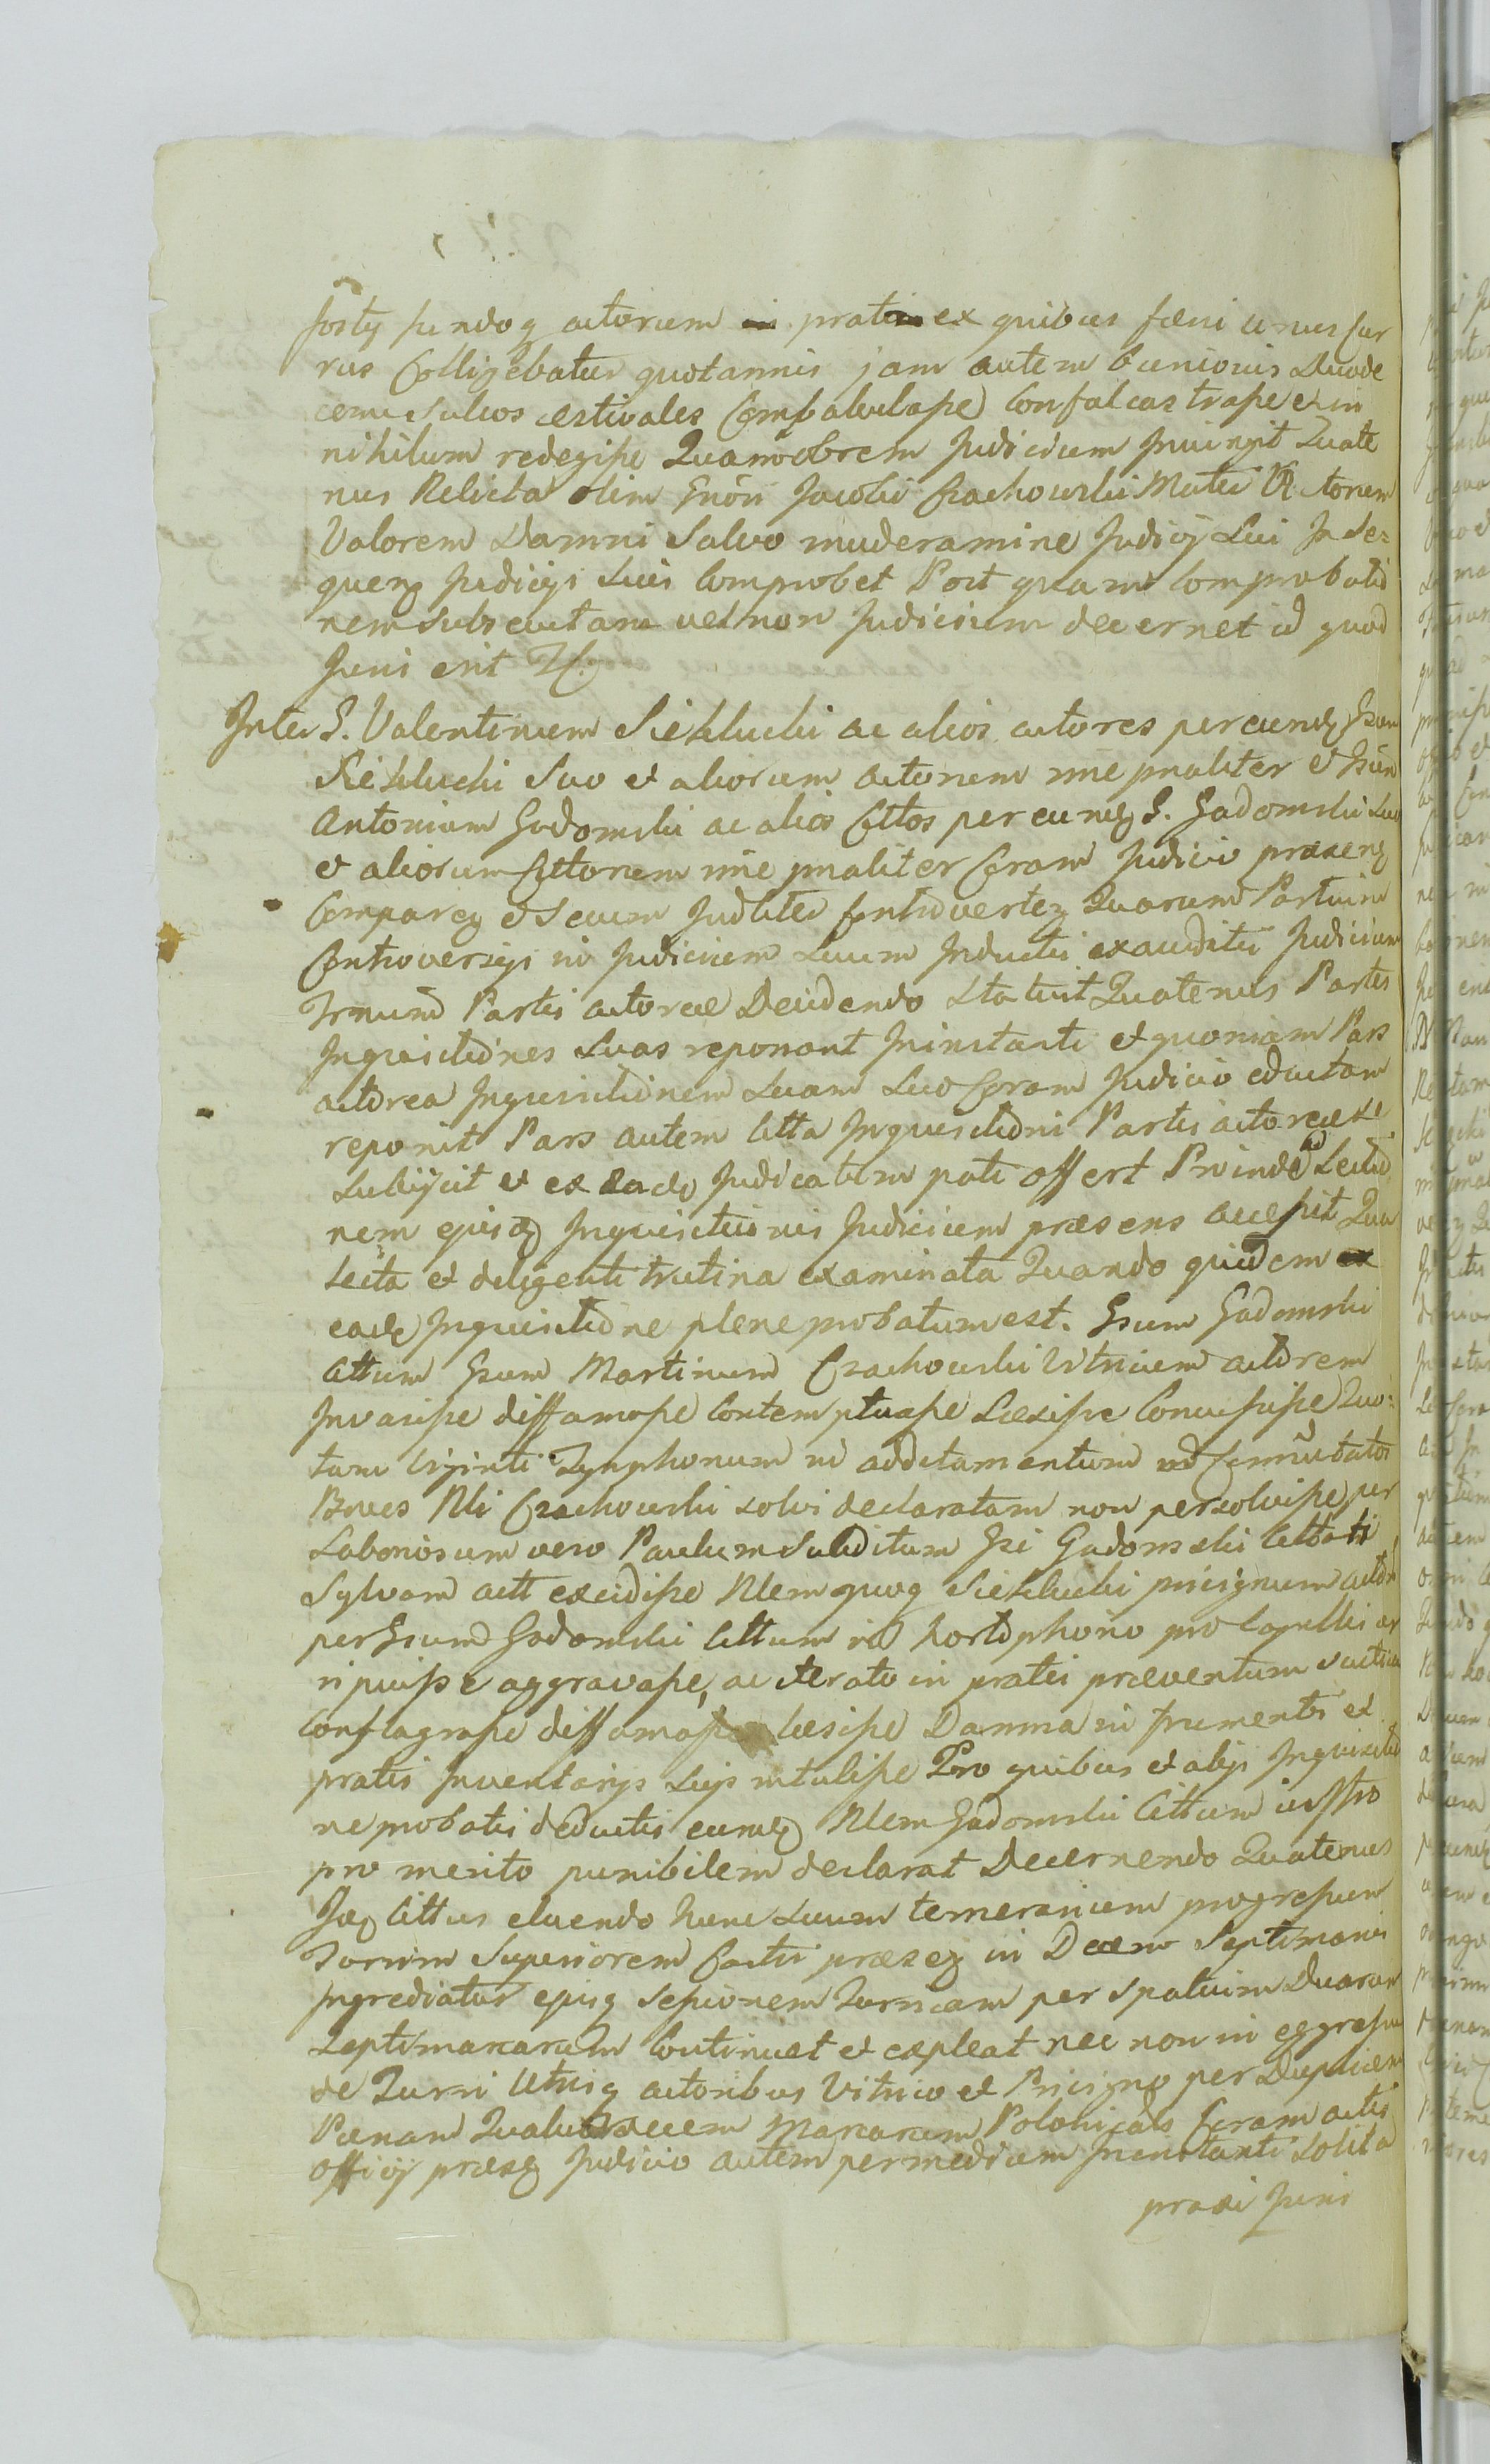 fundoq actorum pratis ex quibus fœni unus cur
rus Colligebatur quotannis jam autem Cunionis Duode
cem sulcos æstivales Compalulasse Confalcastrasse et in
nihilum redegisse Quamobrem Judicium Iniungit Quate
nus Relicta olim Gnosi Jacobi Czachowski Mater Actorum
Valorem Damni Salvo moderamine Judicij Sui In Se=
quenq Judicijs suis Comprobet Post quam Comprobatio
nem subsecutam vel non Judicium decernet id quod
Juris erit
Inter G. Valentinum Siekluckii ac alios actores per eundq Gsum
Siekluckii Suo et aliorum actorum nnie pnaliter et Gsum
Antonium Gadomski ac alios Cittos per eunq G. Gadomski Suo
et aliorum Cittorum nnie pnaliter Coram Judicio præsenq
Comparenq et Secum Judliter Controvertenq Quarum Partium
Controversijs in Judicium Suum Inductis exauditis Judicium
Partis actoreæ Decidendo Statuit Quatenus Partes
Inquisitiones Suas reponant In instanti et quoniam Pars
actorea Inquisitionem Suam Suo Coram Judicio eductam
reponit Pars autem Citta Inquisitioni Partis actoreæ se
Subijcit et ex eadq Judicatum pati offert Proinde ad Lectio
nem ejusq Inquisitionis Judicium præsens accessit Qua
Lecta et diligenti trutina examinata Quando quidem ex
eadq Inquisitione plene probatum est. Gsum Gadomski
Cittum Gsum Martinum Czachowski Vitricum actorem
Invasisse diffamasse Contemptuasse Læsisse Concussisse Quo=
tam Viginti Tynphonum in additamentum ad Commutatos
Boves Nli Czachowski solvi declaratam non persolvisse per
Laboriosum vero Paulum Subditum Gsi Gadomski Cittati
Sylvam actt excidisse Nlem quoq Siekluckii privignum actor
per Gsum Gadomski Cittum in horto phono pro Capillis ar
ripuisse aggravasse, ac iterato in pratis præventum
Conflagrasse diffamasse læsisse Damna in frumentis et
pratis Inventarijs Suis intulisse Pro quibus et alijs Inquisitio
ne probatis deductis eundq Nlem Gadomski Cittum
pro merito punibilem declarat Decernendo Quatenus
Idq Cittus eluendo hunc Suum temerarium progressum
Turrim Superiorem Castri præsenq in Decem Septimanis
Ingrediatur ejusq Sessionem Turricam per Spatium Duarum
Septimanarum Continuet et expleat nec non in eggressu
de Turri Utrisq actoribus Vitrico et Privigno per Duplicem
Pænam Quatuordecem Marcarum Polonicals Coram actis
officij præsenq Judicio autem per mediam In instanti Solita
praxi Juris